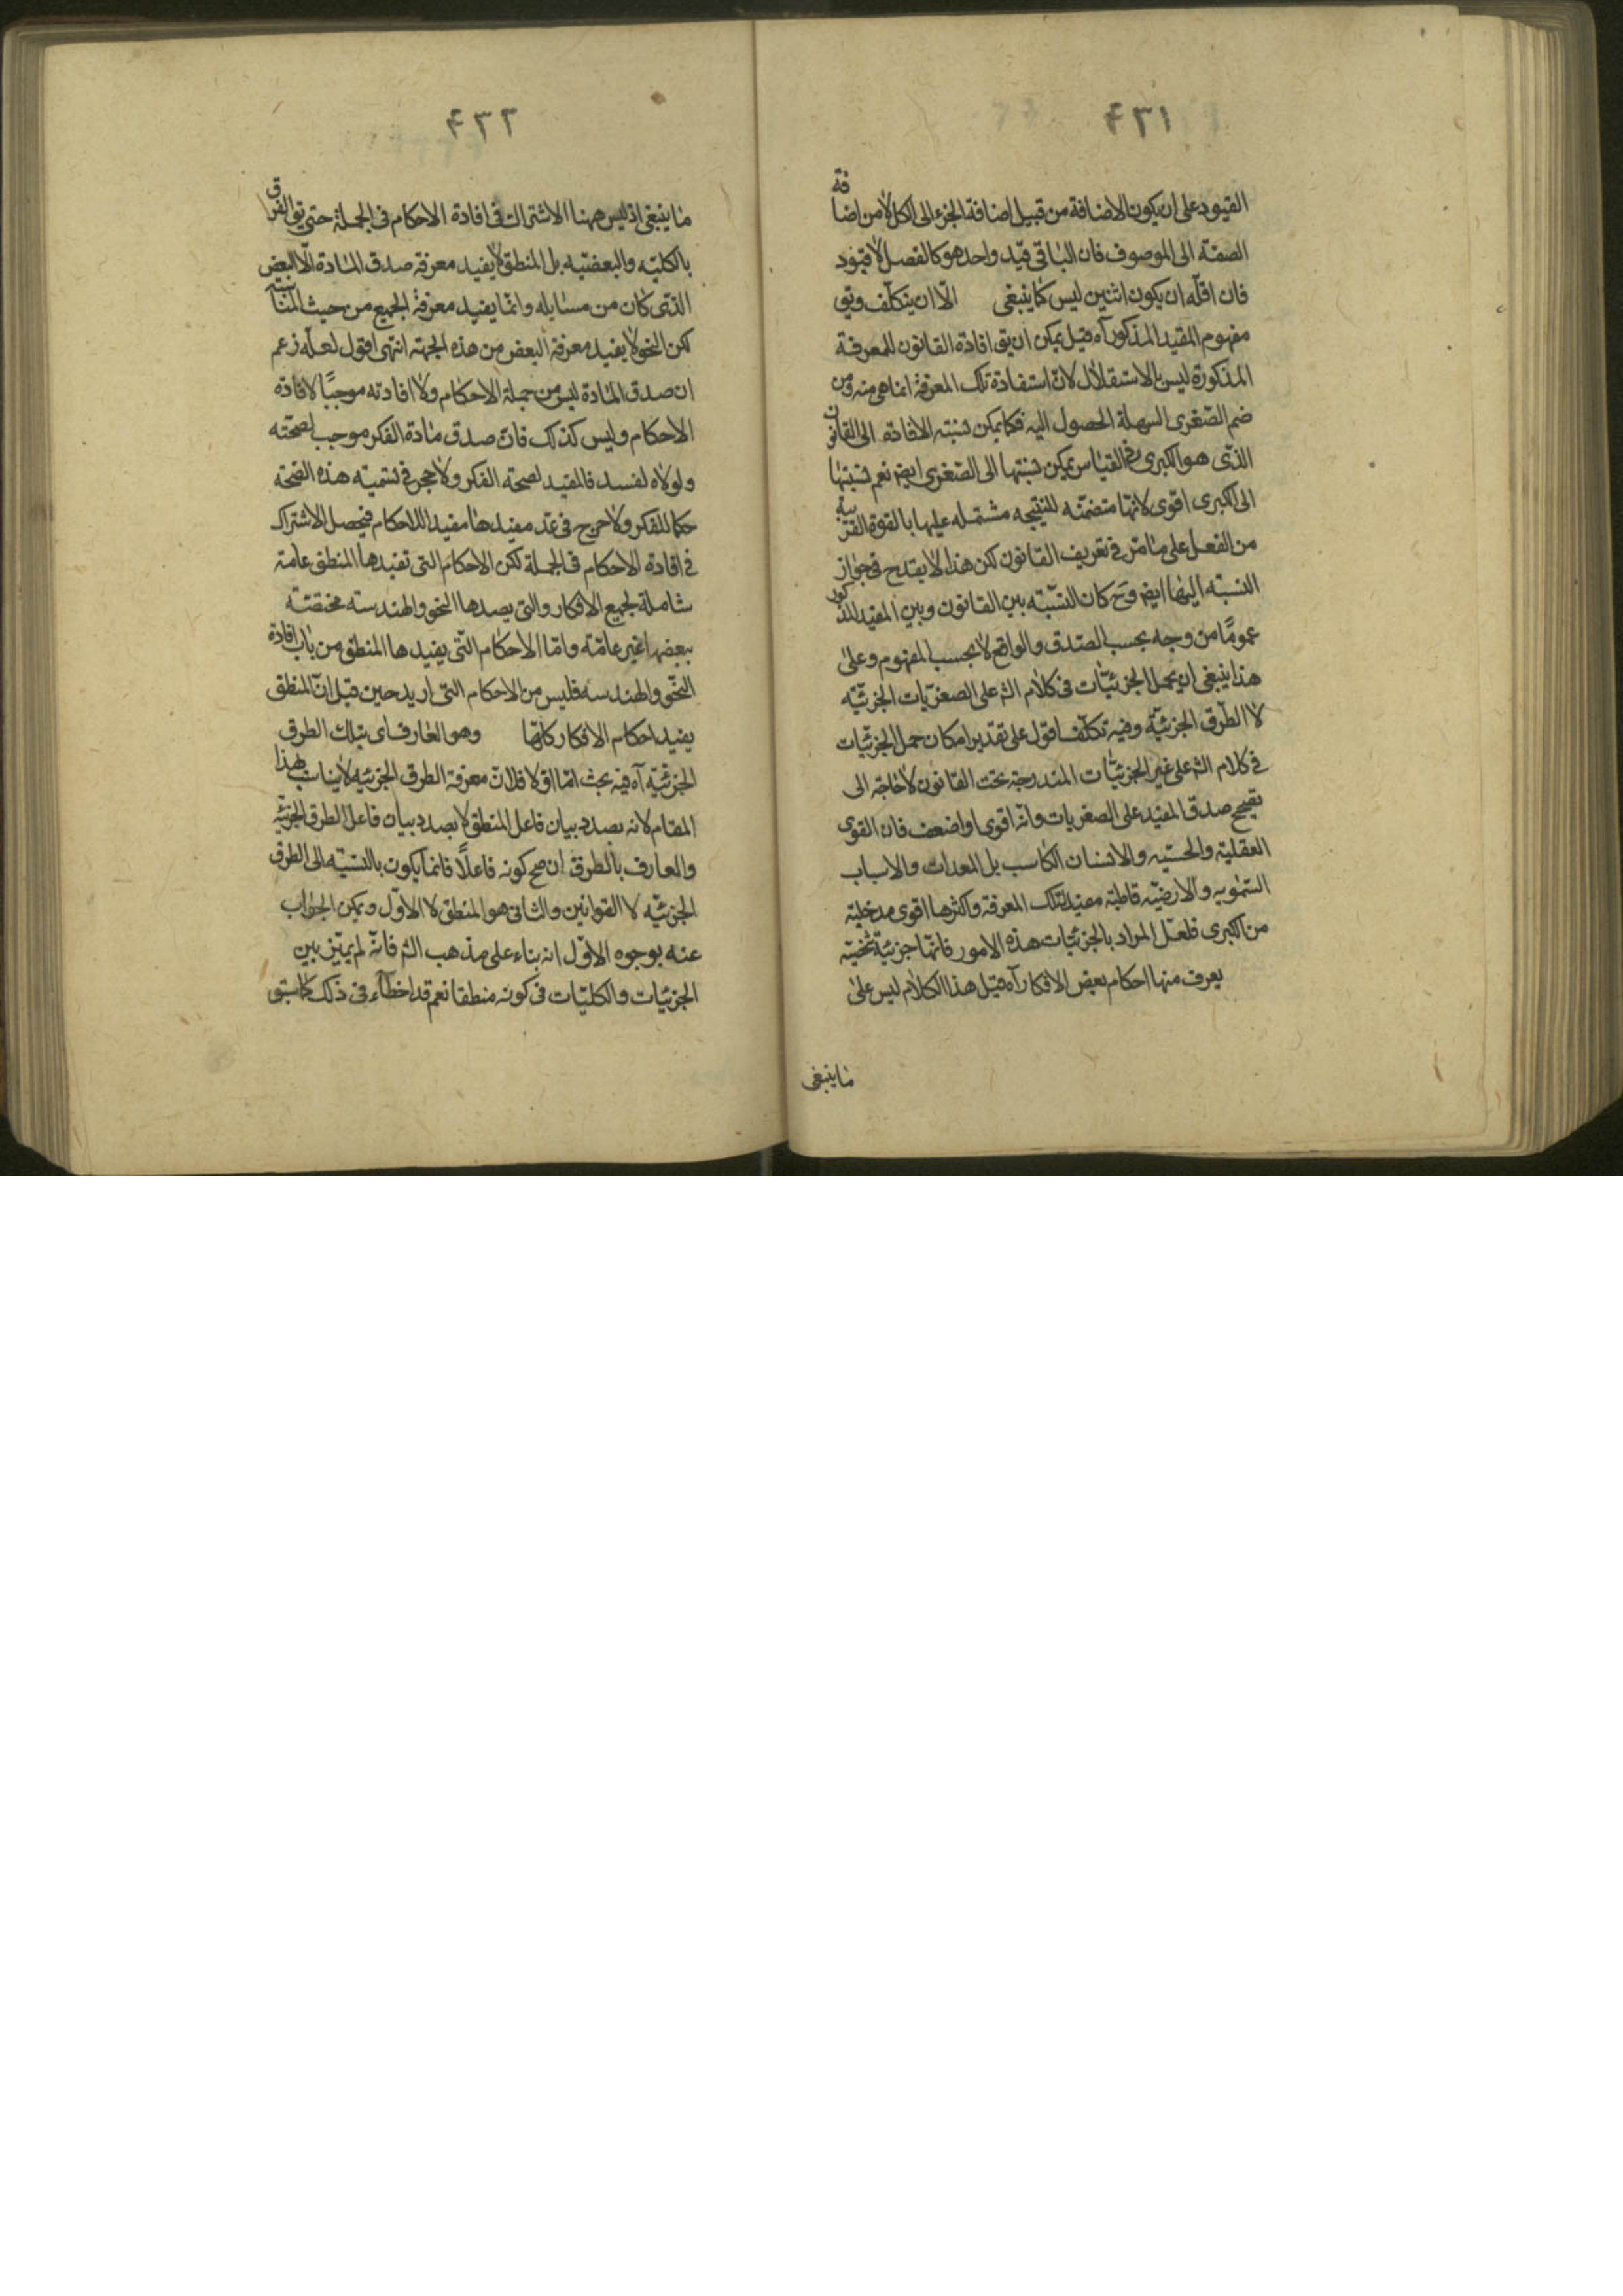 ٤٣١
القيود على ان يكون الاضافة من قبيل اضافة الجزء الى الكل لا من اضافة
الصفة الى الموصوف فان الباقى قيد واحد هو كالفصل لا قيود
فان اقله ان يكون اثنين ليس كما ينبغى الا ان يتكلف ويق
مفهوم المقيد المذكور آه قيل يمكن ان يق افادة القانون للمعرفة
المذكورة ليس بالاستقلال لان استفادة تلك المعرفة انما هى منه ومن
ضم الصغرى السهلة الحصول اليه فكما يمكن نسبته الافادة الى القانون
الذى هو الكبرى فى القياس يمكن نسبتها الى الصغرى ايضا نعم نسبتها
الى الكبرى اقوى لانها متضمنه للنتيجه مشتمله عليها بالقوة القريبة
من الفعل على ما مر فى تعريف القانون لكن هذا لا يقدح فى جواز
النسبته اليها ايضا وح كان النسبته بين القانون وبين المفيد المذكور
عموما من وجه بحسب الصدق والواقع لا بحسب المفهوم وعلى
هذا ينبغى ان يحمل الجزئيات فى كلام الش على الصغريات الجزئيه
لا الطرق الجزئية وفيه تكلف اقول على تقدير امكان حمل الجزئيات
فى كلام الش على غير الجزئيات المندرجة تحت القانون لا حاجة الى
تصحيح صدق المفيد على الصغريات وانه اقوى او اضعف فان القوى
العقلية والحسيه والانسان الكاسب بل المعدات والاسباب
السمويه والارضيه قاطبة مفيد لتلك المعرفة واكثرها اقوى مدخلية
من الكبرى فلعل المراد بالجزئيات هذه الامور فانها جزئية
يعرف منها احكام بعض الافكار آه قيل هذا الكلام ليس على
ما ينبغى
٤٣٢
ما ينبغى اذ ليس ههنا الاشتراك فى افادة الاحكام فى الجملة حتى يق الفرق
بالكليه والبعضيه بل المنطق لا يفيد معرفة صدق المادة الا البعض
الذى كان من مسايله وانما يفيد معرفة الجميع من حيث المناسبة
لكن النحو لا يفيد معرفة البعض من هذه الجهة انتهى اقول لعله زعم
ان صدق المادة ليس من جملة الاحكام ولا افادته موجبا لافادة
الاحكام وليس كذلك فان صدق مادة الفكر موجب لصحته
ولولاه لفسد فالمفيد لصحة الفكر ولا حجر فى تسميته هذه الصحة
حكما للفكر ولا حرج فى عد مفيدها مفيدا للاحكام فيحصل الاشتراك
فى افادة الاحكام فى الجملة لكن الاحكام التى تفيدها المنطق عامة
شاملة لجميع الافكار والتى يصدها النحو والهندسته مختصته
ببعضها غير عامة واما الاحكام التى يفيدها المنطق من باب افادة
النحو والهندسه فليس من الاحكام التى اريد حين قيل ان المنطق
يفيد احكام الافكار كلها وهو العارف اى بتلك الطرق
الجزئية آه فيه بحث اما اولا فلان معرفة الطرق الجزئيه لا يناسب لهذا
المقام لانه بصدد بيان فاعل المنطق لا بصدد بيان فاعل الطرق الجزئيه
والعارف بالطرق ان صح كونه فاعلا فانما يكون بالنسبة الى الطرق
الجزئيه لا القوانين والثانى هو المنطق لا الاول ويمكن الجواب
عنه بوجوه الاول انه بناء على مذهب الش فانه لم يميز بين
الجزئيات والكليات فى كونه منطقا نعم قد اخطأ فى ذلك كما سبق